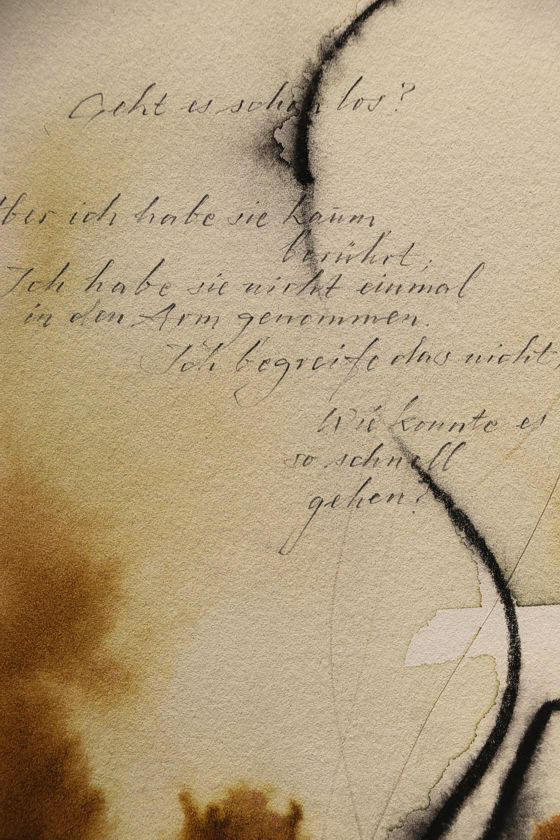 Geht es schon los?
Aber ich habe sie kaum
berührt,
Ich habe sie nicht einmal
in den Arm genommen.
Ich begreife das nicht,
Wie konnte es
so schnell
gehen?